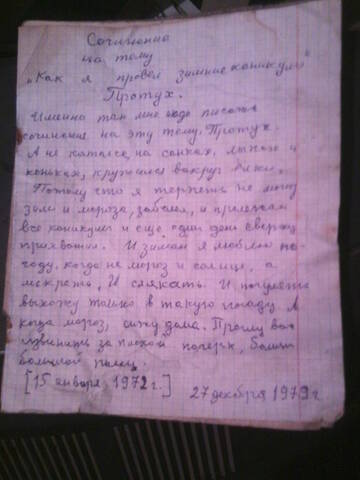 Сочинение
на тему
„Как я провел зимние каникулы"
Протух.
Именно так мне надо писать
сочинение на эту тему. Протух.
А не катался на санках, лыжах и
коньках, кружился вокруг ёлки.
Потому что я терпеть не могу
зиму и мороза, заболел, и пролежал
все каникулы и еще один день сверху
прихватил. И зимой я люблю по-
году, когда не мороз и солнце, а
мокреть, И слякоть. И погулять
выхожу только в такую погоду А
когда мороз, сижу дома. Прошу вас
извинить за плохой почерк, болит
большой палец.
[15 января 1972г.]
27 декабря 1979г